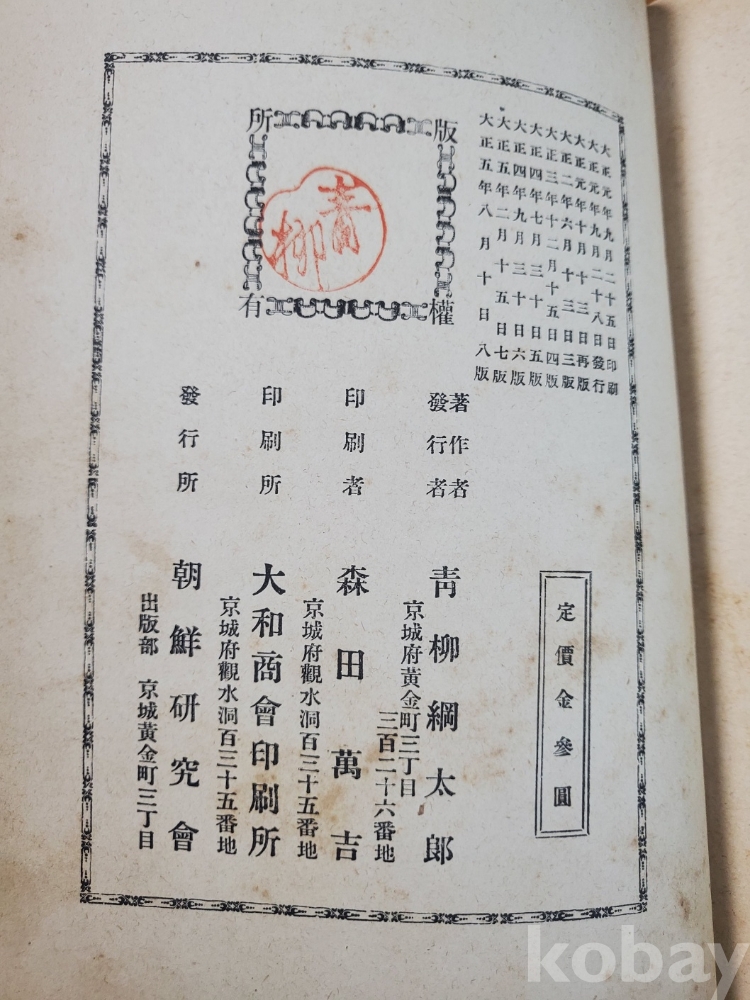 大正元年九月二十五日印刷
大正元年九月二十八日發行
大正元年十月十三日再版
大正二年六月十三日三版
大正三年十二月十五日四版
大正四年七月三十日五版
大正四年九月三十日六版
大正五年二月十五日七版
大正五年八月十日八版
版權所有
青柳
定價金參圓
著作者
發行者
青柳綱太郎
京城府黃金町三丁目
三百二十六番地
印刷者
森田萬吉
京城府觀水洞百三十五番地
印刷所
大和商會印刷所
京城府觀水洞百三十五番地
發行所
朝鮮研究會
出版部 京城黃金町三丁目
kobay